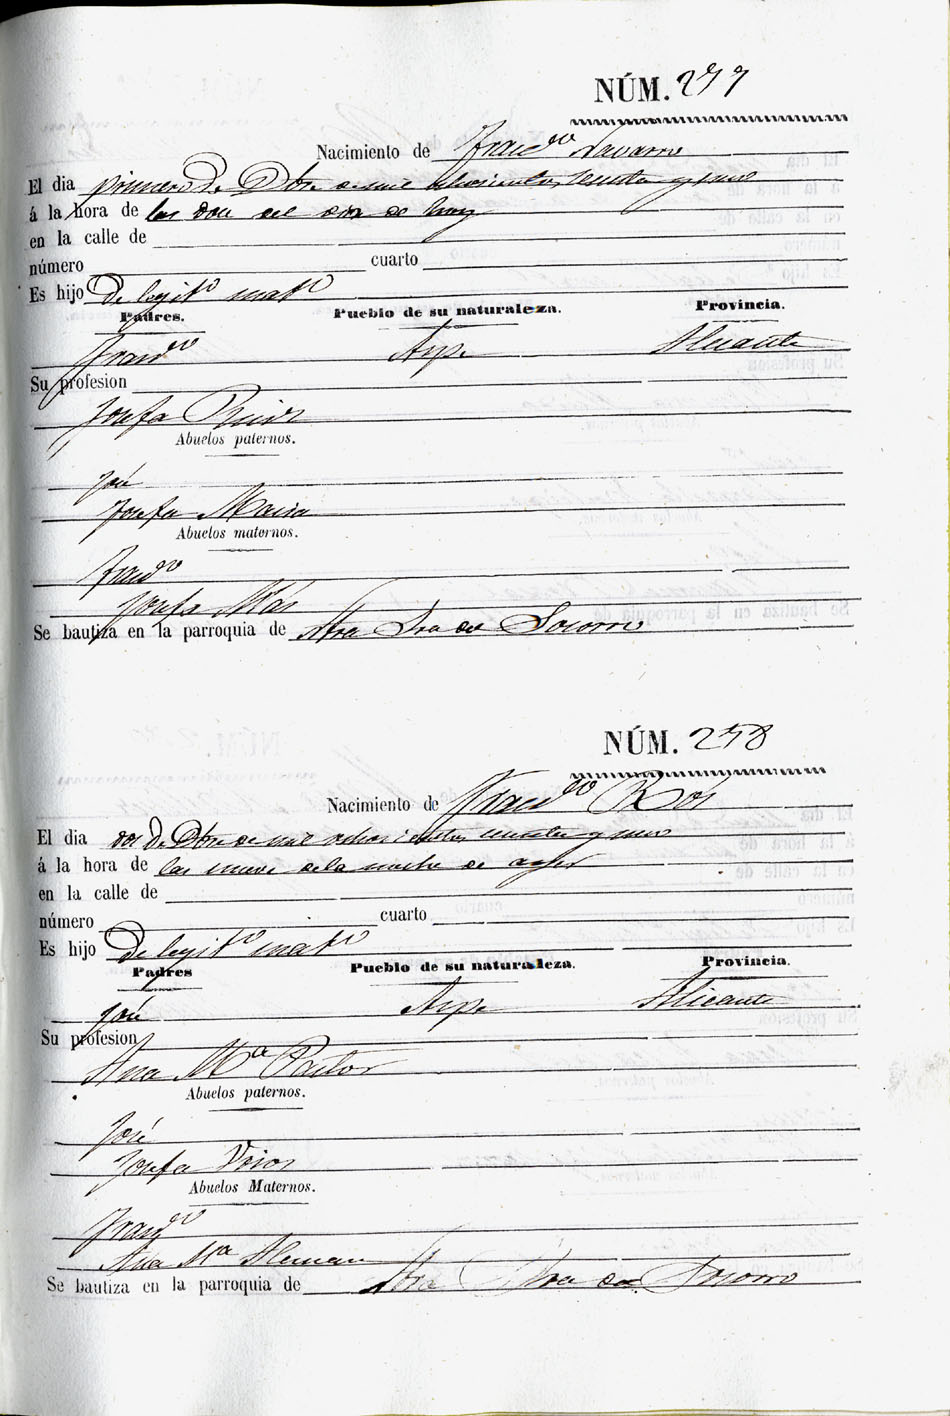 NÚM. 277
Nacimiento de Fran.co Navarro
El dia primero de Dbre de mil ochocientos setenta y uno
á la hora de las doce del dia de hoy
en la calle de
número cuarto
Es hijo de legit.o mat.o
Padres. Pueblo de su naturaleza. Provincia.
Fran.co Aspe Alicante
Su profesion
Josefa
Abuelos paternos.
José
Josefa Maria
Abuelos maternos.
Fran.co
Josefa Mas
Se bautiza en la parroquia de Ntra Sra del Socorro
NÚM. 278
Nacimiento de Fran.co
El dia dos de Dbre de mil ochocientos setenta y uno
á la hora de las nueve de la noche de ayer
en la calle de
número cuarto
Es hijo de legit.o mat.o
Padres Pueblo de su naturaleza. Provincia.
José Aspe Alicante
Su profesion
Ana M.a Pastor
Abuelos paternos.
José
Josefa
Abuelos Maternos.
Fran.co
Ana M.a Aleman
Se bautiza en la parroquia de Ntra Sra del Socorro